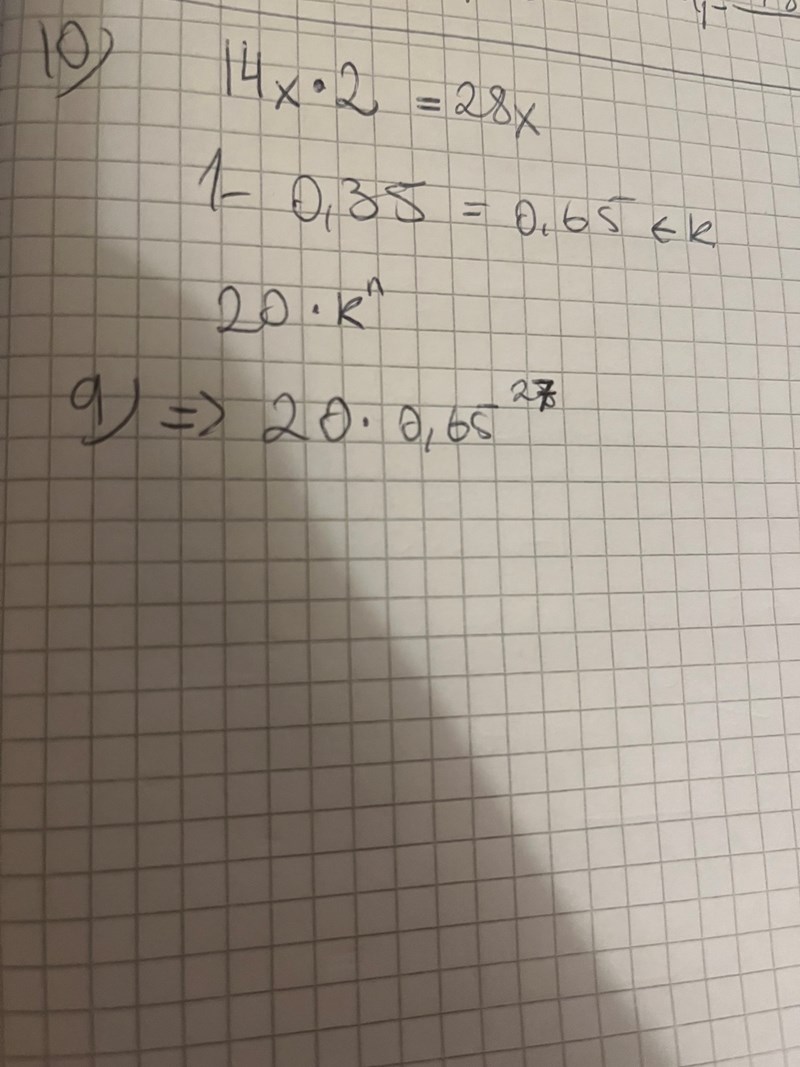 10)
14x · 2 = 28x
1 - 0,35 = 0,65 ← k
20 · kⁿ
a) => 20 · 0,65